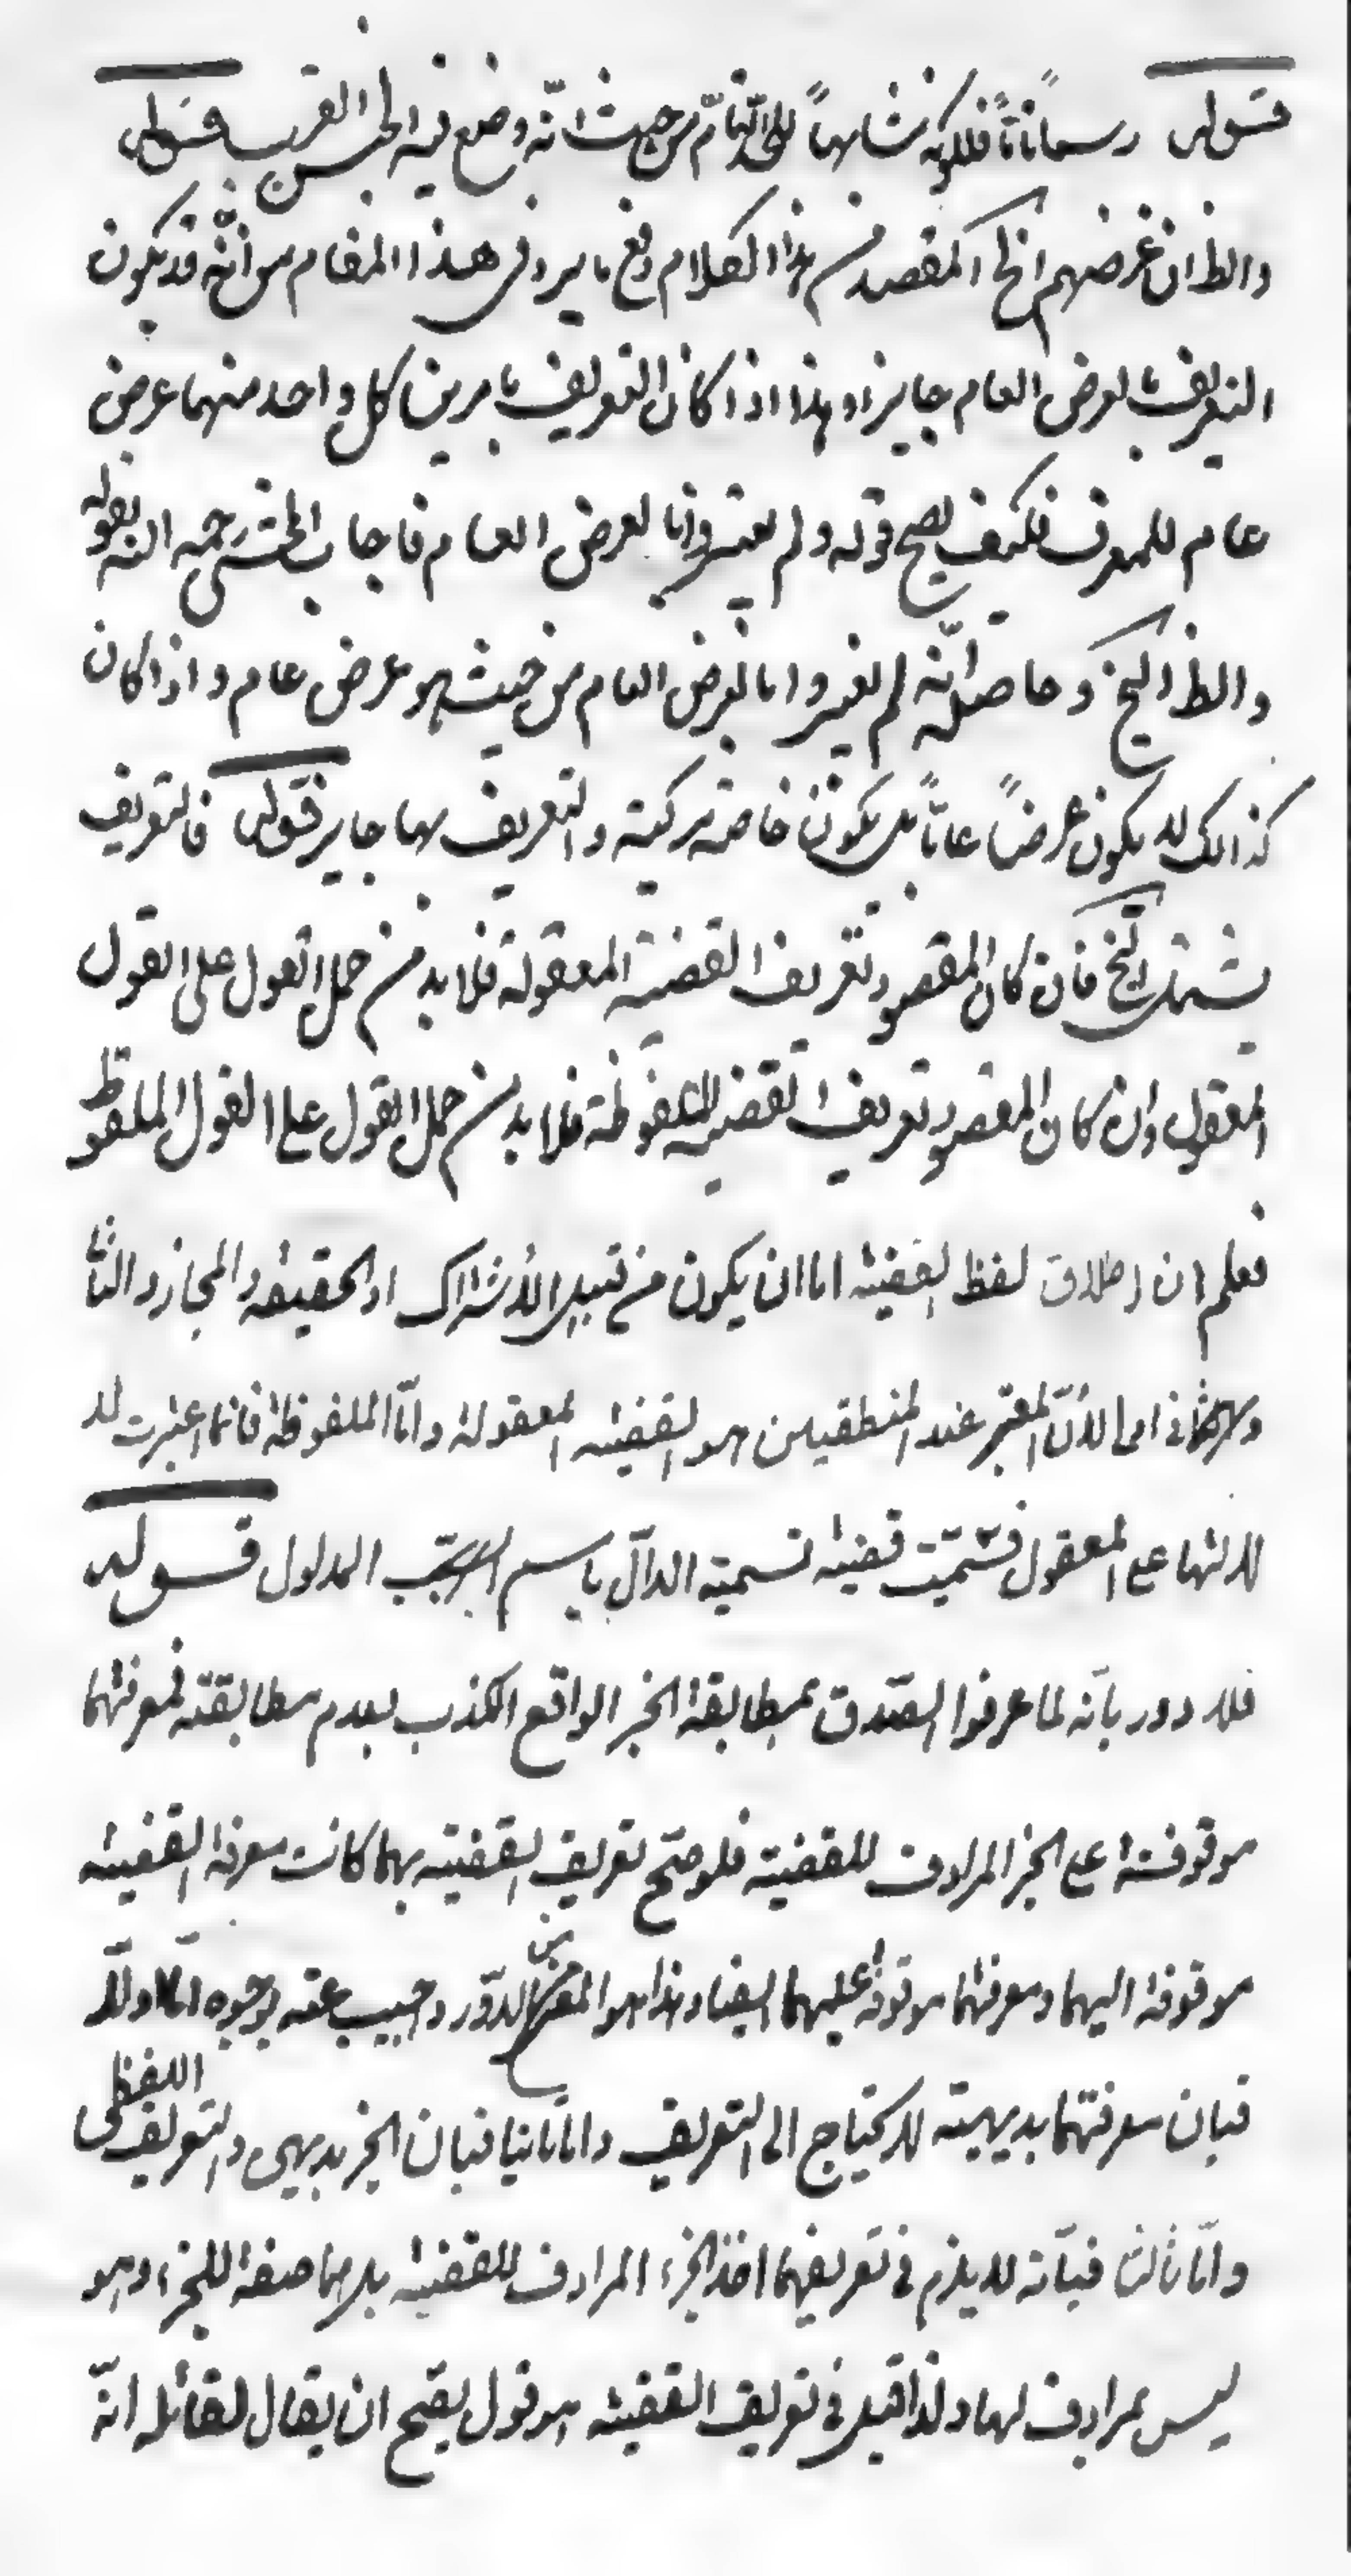 قوله رسما ناقصاً فلكونه مشابهاً للحد التام من حيث انّه وضع فيه الجنس القريب قوله
والظ ان غرضهم الخ المقصد من هذا الكلام دفع ما يرد فى هذا المقام من أنّه قد يكون
التعريف بالعرض العام جايزا وهذا اذا كان التعريف بامرين كل واحد منهما عرض
عام للمعرف فكيف يصح قوله ولم يعتبروا بالعرض العام فاجاب المحشى رحمه الله بقوله
والظ الخ وحاصله انّه لم يعتبروا بالعرض العام من حيث هو عرض عام واذا كان
كذالك لا يكون عرضاً عامّاً بل يكون خاصة مركبة والتعريف بها جايز قوله فالتعريف
يشتمل الخ فان كان المقصود تعريف القضية المعقولة فلا بد من حمل القول على القول
المعقول وان كان المقصود تعريف القضية الملفوظة فلا بد من حمل القول على القول الملفوظ
فعلم ان اطلاق لفظ القضية اما ان يكون من قبيل الاشتراك او الحقيقة والمجاز والثانى
اولى لانّ المعتبر عند المنطقيين هو القضية المعقولة وامّا الملفوظة فانما اعتبرت لد
لالتها على المعقول فسُمّيت قضية تسمية الدالّ باسم المدلول قوله
فلا دور بانّه لما عرفوا الصّدق بمطابقة الخبر الواقع الكذب بعدم مطابقته فمعرفتهما
موقوفة على الخبر المرادف للقضية فلو صحّ تعريف القضية بهما كانت معرفة القضية
موقوفة اليهما ومعرفتهما موقوفة عليهما ايضا وهذا هو المعنى من الدّور واجيب عنه بوجوه امّا اولا
فبان معرفتهما بديهية لا يحتاج الى التعريف وامّا ثانيا فبان الخبر بديهى والتعريف اللفظى
وامّا ثالثا فبانّه لا يلزم فى تعريفهما اخذ الخبر المرادف للقضية بل هما صفة للخبر وهو
ليس بمرادف لها ولذا قيل فى تعريف القضية هو قول يصّح ان يقال لقائله انّه